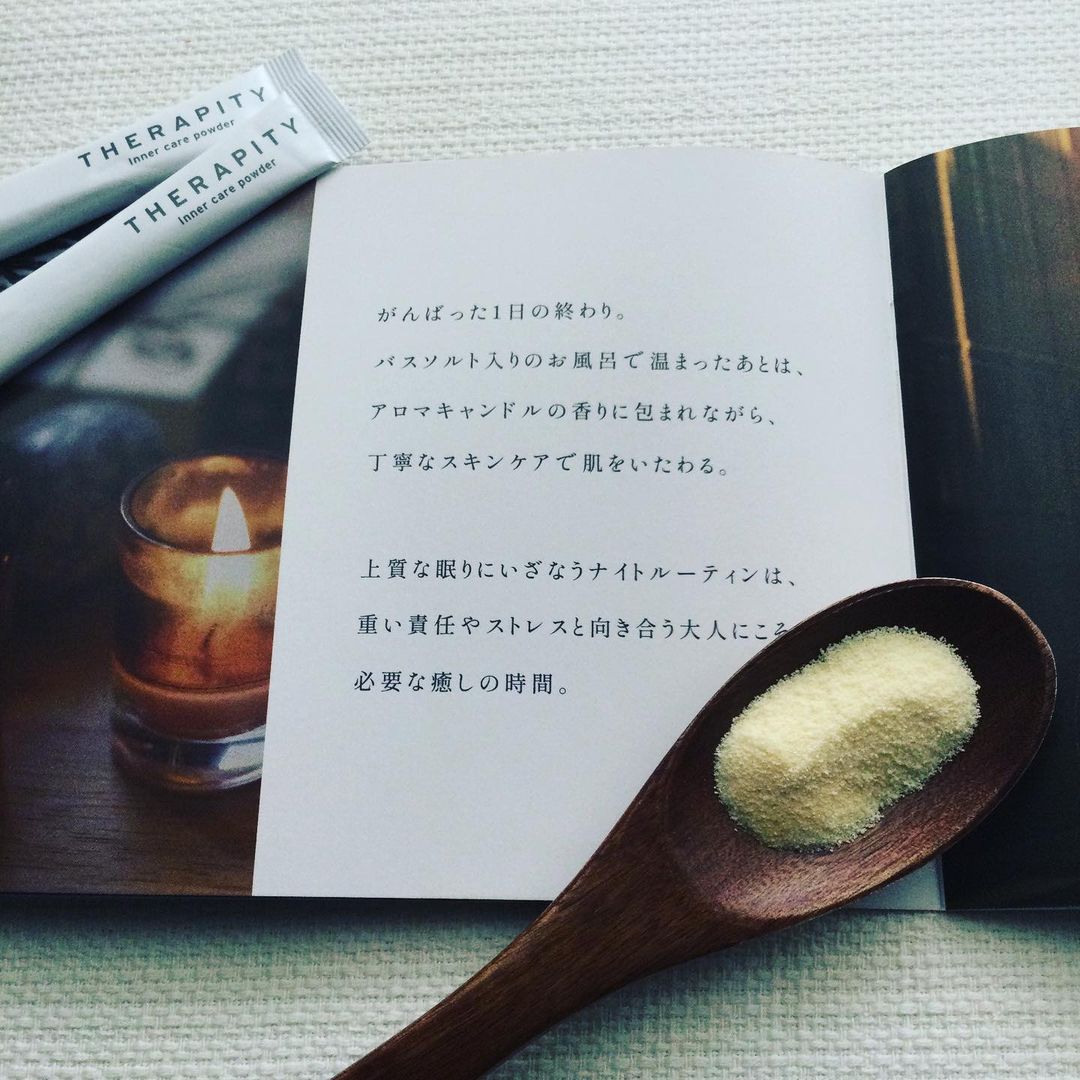 THERAPITY
Inner care powder
THERAPITY
Inner care powder
がんばった1日の終わり。
バスソルト入りのお風呂で温まったあとは、
アロマキャンドルの香りに包まれながら、
丁寧なスキンケアで肌をいたわる。
上質な眠りにいざなうナイトルーティンは、
重い責任やストレスと向き合う大人にこそ
必要な癒しの時間。